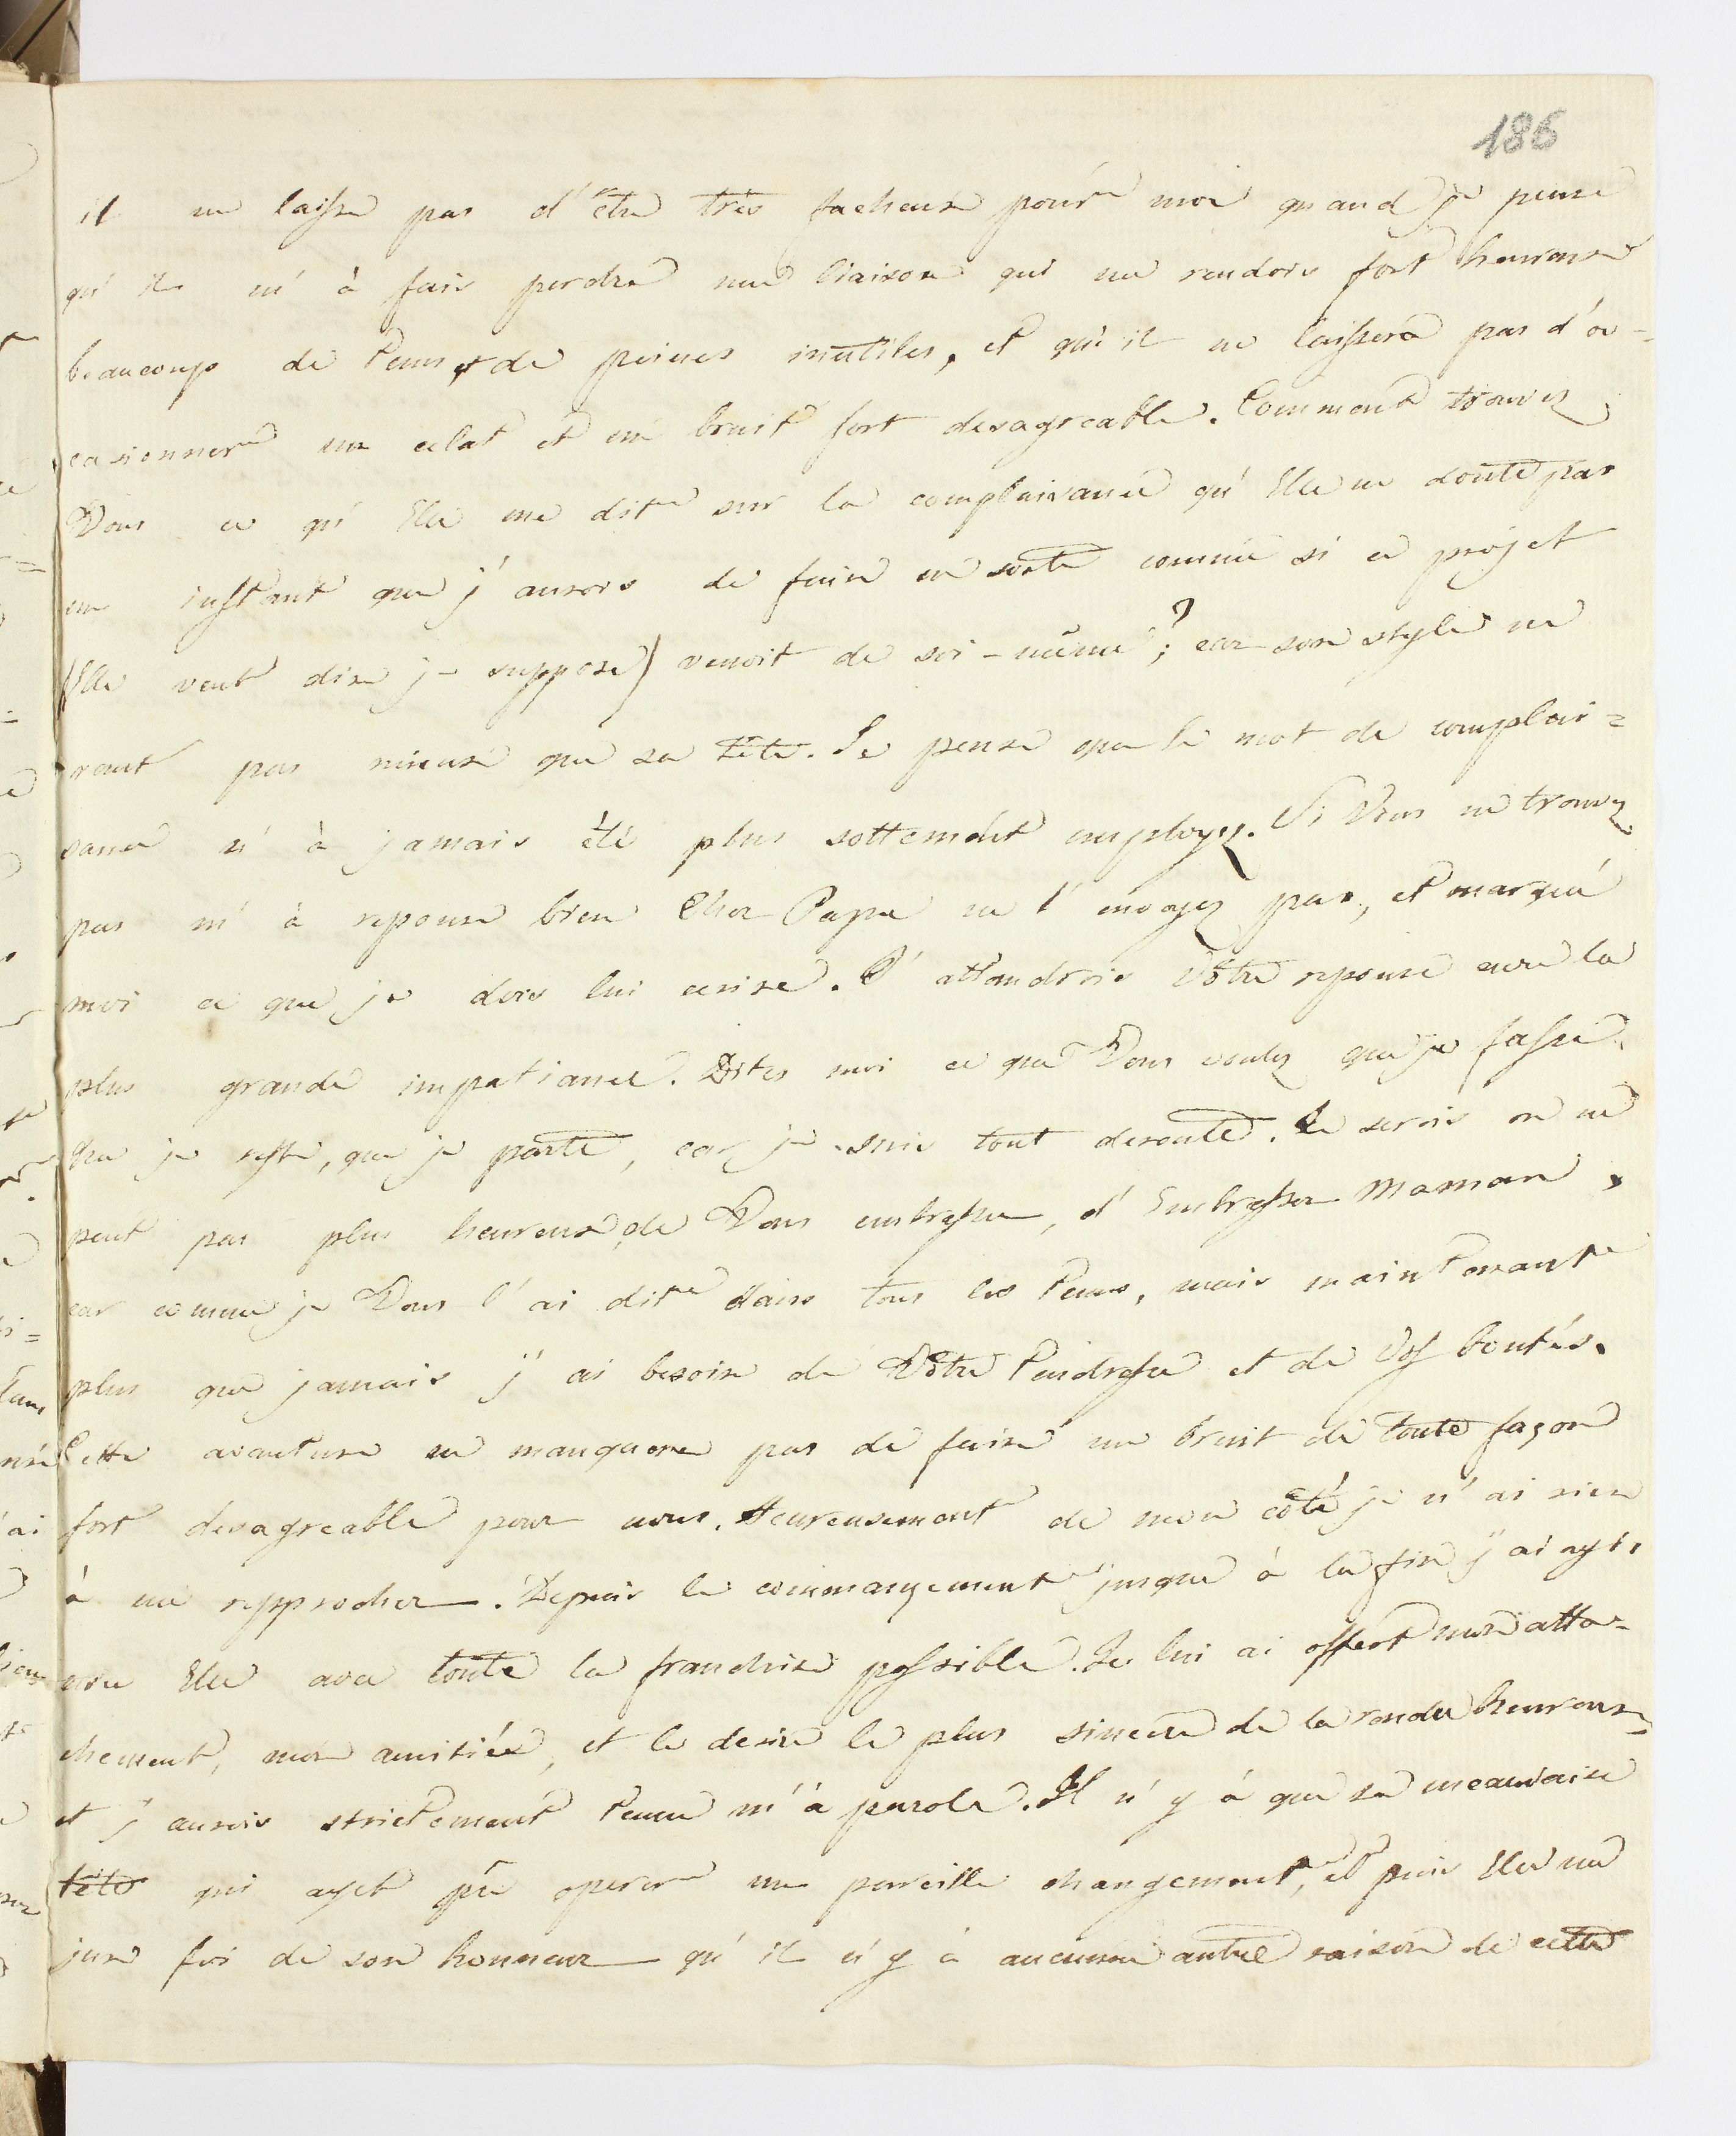 186
il ne laisse pas d'être très facheuse pour moi quand je pense
qu'il m'à fais perdre une liaison qui me rendois fort heureuse
beaucoup de tems, et de peines inutiles, et qu'il ne laissera pas d'oc-
casionner un eclat et un bruit fort desagreable. Comment trouvez
Vous ce qu'Elle me dit sur la complaisance qu'Elle ne doute pas
un instant que j'aurois de faire en sorte comme si ce projet
(Elle veut dire je suppose) venoit de soi-même?; car son style ne
vaut pas mieux que sa tête. Je pense que le mot de complai=
sance n'à jamais été plus sottement employez. Si Vous ne trouvez
pas m'à reponse bien Cher Papa ne l'envoyez pas, et marqué
moi ce que je dois lui ecrire. J'attendrois Votre reponse avec la
plus grande impatiance. Dites moi ce que Vous voulez que je fasse.
Que je reste, que je parte, car je suis tout derouté. Je serois on ne
peut pas plus heureux de Vous embrasser, d'Embrasser Maman,
car comme je Vous l'ai dit dans tous les tems, mais maintenant
plus que jamais j'ai besoin de Votre tendresse et de Vos bontés.
Cette avanture ne manquera pas de faire un bruit de toute façon
fort desagreable pour nous. Heureusement de mon côté je n'ai rien
à me repprocher. Depuis le commançement jusque à la fin j'ai agi,
avec Elle avec toute la franchise possible. Je lui ai offert mon atta-
chement, mon amitiée, et le desire le plus sincere de la rendre heureuse,
et j'aurois strictement tenue m'à parole. Il n'y à que sa meauvaise
tête qui ayet pû operer un pareille changement, et puis Elle me
jure foi de son honneur qu'il n'y à aucune autre raison de cette